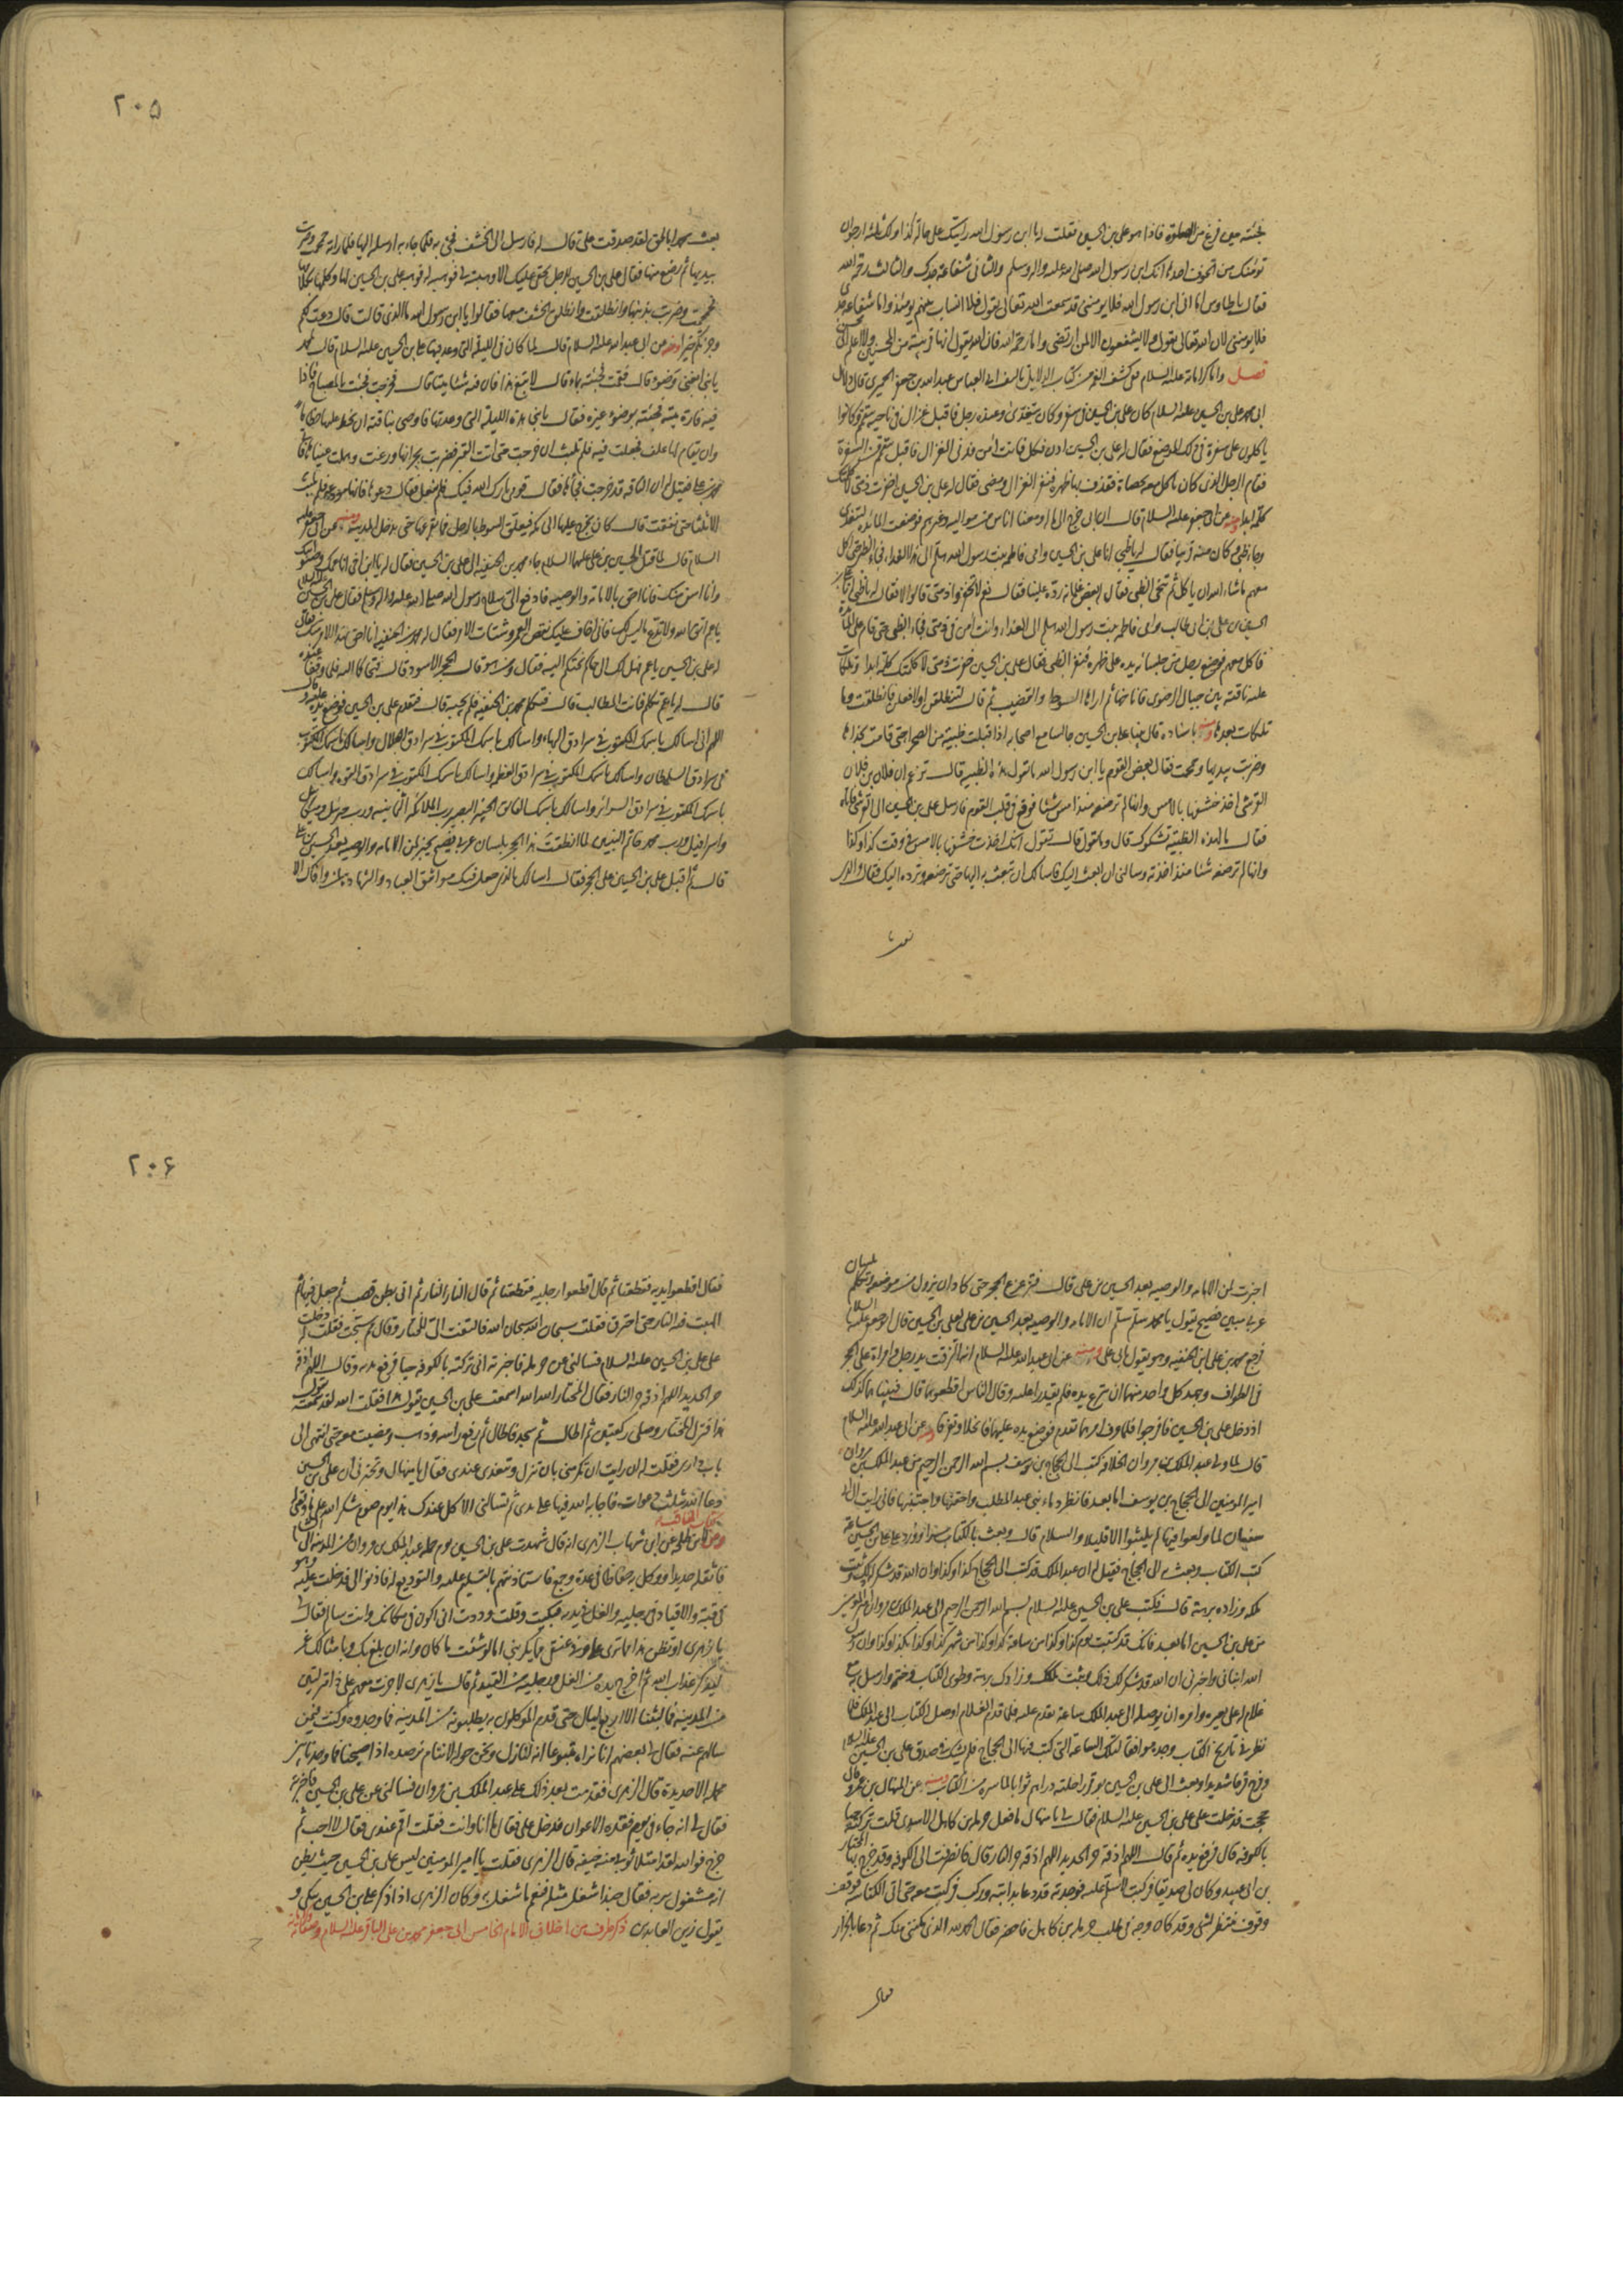 فجئته حين فرغ من الصلوة فاذا هو علي بن الحسين فقلت له يا ابن رسول الله رايتك على حالة كذا ولك ثلثة ارجوان
تؤمنك من الخوف احدها انك ابن رسول الله صلى الله عليه واله وسلم والثاني شفاعة جدك والثالث رحمة الله
فقال يا طاوس اما اني ابن رسول الله فلا يؤمنني وقد سمعت الله تعالى يقول فلا انساب بينهم يومئذ واما شفاعة جدي
فلا يؤمنني لان الله تعالى يقول ولا يشفعون الا لمن ارتضى واما رحمة الله فان الله يقول انها قريبة من المحسنين ولا اعلم اني محسن
فصل واما كراماته عليه السلام فمن كشف الغمة من كتاب الدلايل تاليف ابي العباس عبد الله بن جعفر الحميري قال دلال
ابي محمد علي بن الحسين عليه السلام كان علي بن الحسين في سفر وكان يتغدى وعنده رجل فاقبل غزال في ناحية يتقمم وكانوا
ياكلون على سفرة في ذلك الموضع فقال له علي بن الحسين ادن فكل فانت امن فدنى الغزال فاقبل يتقمم من السفرة
فقام الرجل الذي كان ياكل معه بحصاة فقذف بها ظهره فنفر الغزال ومضى فقال له علي بن الحسين اخفرت ذمتي لا كلمتك
كلمة ابدا ومنه عن ابي جعفر عليه السلام قال ان ابي خرج الى ماله ومعنا اناس من مواليه وغيرهم فوضعت المائدة ليتغدى
وجاء ظبي كان منه قريبا فقال له يا ظبي انا علي بن الحسين وامي فاطمة بنت رسول الله هلم الى هذا الغداء فجاء الظبي حتى اكل
معهم ما شاء الله ان ياكل ثم تنحى الظبي فقال له بعض غلمانه رده علينا فقال لهم لا تخفروا ذمتي قالوا لا فقال له يا ظبي انا علي بن
الحسين بن علي بن ابي طالب وامي فاطمة بنت رسول الله هلم الى الغداء وانت امن في ذمتي فجاء الظبي حتى قام على المائدة
فاكل معهم فوضع رجل من جلسائه يده على ظهره فنفر الظبي فقال علي بن الحسين خفرت ذمتي لا كلمتك كلمة ابدا وتلكات
عليه ناقته بين جبال الرضوى فاناخها ثم اراها السوط والقضيب ثم قال لتنطلقن او لافعلن فانطلقت وما
تلكات بعدها ومنه باسناده قال بينا علي بن الحسين جالسا مع اصحابه اذا قبلت ظبية من الصحرا حتى قامت بحذاه
وضربت بيديها وحمحمت فقال بعض القوم يا ابن رسول الله ما تقول هذه الظبية قال تزعم ان فلان بن فلان
القرشي اخذ خشفها بالامس وانها لم ترضعه منذ امس شيئا فوقع في قلب القوم فارسل علي بن الحسين الى القرشي فاتاه
فقال ما لهذه الظبية تشكوك قال وما تقول قال تقول انك اخذت خشفها بالامس في وقت كذا وكذا
وانها لم ترضعه شيئا منذ اخذته وسالني ان ابعث اليك فاسالك ان تبعث به اليها حتى ترضعه وترده اليك فقال والذي
٢٠٥
بعث محمدا بالحق لقد صدقت علي قال له فارسل الى الخشف فجئ به فلما جاء به ارسله اليها فلما راته حمحمت وضربت
بيديها ثم رضع منها فقال علي بن الحسين للرجل بحقي عليك الا وهبته لي فوهبه له فوهبه علي بن الحسين لها وكلمها بكلامها
فحمحمت وضربت بذنبها وانطلقت وانطلق الخشف معها فقالوا يا ابن رسول الله ما الذي قالت قال دعت لكم
وجزتكم خيرا ومنه عن ابي عبد الله عليه السلام قال لما كان في الليلة التي وعد فيها علي بن الحسين عليه السلام قال لمحمد
يا بني ابغني وضوء قال فقمت فجئته بماء قال لا تبغ هذا فان فيه شيئا ميتا قال فخرجت فجئت بالمصباح فاذا
فيه فارة ميتة فجئته بوضوء غيره فقال يا بني هذه الليلة التي وعدتها فاوصى بناقته ان يحط عليها خطاما
وان يقام لها علف فجعلت فيه فلم تلبث ان خرجت حتى اتت القبر فضربت بجرانها ورغت وهملت عيناها فاتى
محمد بن علي فقيل له ان الناقة قد خرجت فجاءها فقال قومي بارك الله فيك فلم تفعل فقال دعوها فانها مودعة فلم تلبث
الا ثلثا حتى نفقت قال كان يخرج عليها الى مكة فيعلق السوط بالرحل فما يقرعها حتى يدخل المدينة ومنه عن ابي جعفر عليه
السلام قال لما قتل الحسين بن علي عليهما السلام جاء محمد بن الحنفية الى علي بن الحسين فقال له يا ابن اخي انا عمك وصنو ابيك
وانا اسن منك فانا احق بالامانة والوصية فادفع الي سلاح رسول الله صلى الله عليه واله وسلم فقال علي بن الحسين عليه السلام
يا عم اتق الله ولا تدع ما ليس لك فاني اخاف عليك نقص العمر وشتات الامر فقال له محمد بن الحنفية انا احق بهذا الامر منك فقال
له علي بن الحسين يا عم فهل لك الى حاكم نحتكم اليه فقال ومن هو قال الحجر الاسود قال فتحاكما اليه فلما وقفا عنده
قال له يا عم تكلم فانت المطالب قال فتكلم محمد بن الحنفية فلم يجبه قال فتقدم علي بن الحسين فوضع يده عليه وقال
اللهم اني اسالك باسمك المكتوب في سرادق البهاء واسالك باسمك المكتوب في سرادق الجلال واسالك باسمك المكتوب
في سرادق السلطان واسالك باسمك المكتوب في سرادق العظمة واسالك باسمك المكتوب في سرادق القوة واسالك
باسمك المكتوب في سرادق السرائر واسالك باسمك الفائق الخبير البصير رب الملائكة الثمانية ورب جبرئيل وميكائيل
واسرافيل ورب محمد خاتم النبيين لما انطقت هذا الحجر بلسان عربي فصيح يخبر لمن الامامة والوصية بعد الحسين بن علي
قال ثم اقبل علي بن الحسين على الحجر فقال اسالك بالذي جعل فيك مواثيق العباد والشهادة لمن وافاك الا
اخبرت لمن الامامة والوصية بعد الحسين بن علي قال فتزعزع الحجر حتى كاد ان يزول من موضعه وتكلم بلسان
عربي مبين فصيح يقول يا محمد سلم سلم ان الامامة والوصية بعد الحسين بن علي لعلي بن الحسين قال ابو جعفر عليه السلام
فرجع محمد بن علي ابن الحنفية وهو يقول بابي علي ومنه عن ابي عبد الله عليه السلام انه التزقت يد رجل وامراة على الحجر
في الطواف وجهد كل واحد منهما ان ينزع يده فلم يقدرا عليه وقال الناس اقطعوهما قال فبينا هما كذلك
اذ دخل علي بن الحسين فافرجوا فلما عرف امرهما تقدم فوضع يده عليهما فانحلا وتفرقا ومنه عن ابي عبد الله عليه السلام
قال لما ولي عبد الملك بن مروان الخلافة كتب الى الحجاج بن يوسف بسم الله الرحمن الرحيم من عبد الملك بن مروان
امير المومنين الى الحجاج بن يوسف اما بعد فانظر دماء بني عبد المطلب واحقنها واجتنبها فاني رايت ال ابي
سفيان لما ولعوا فيها لم يلبثوا الا قليلا والسلام قال وبعث بالكتاب سرا وورد على علي بن الحسين ساعة
كتب الكتاب وبعث به الى الحجاج فقيل له ان عبد الملك قد كتب الى الحجاج كذا وكذا وان الله قد شكر له ذلك وثبت
ملكه وزاده برهة قال فكتب علي بن الحسين عليه السلام بسم الله الرحمن الرحيم الى عبد الملك بن مروان امير المومنين
من علي بن الحسين اما بعد فانك قد كتبت يوم كذا وكذا من ساعة كذا وكذا من شهر كذا وكذا بكذا وكذا وان رسول
الله انباني واخبرني ان الله قد شكر لك ذلك وثبت ملكك وزادك برهة وطوى الكتاب وختمه وارسل به مع
غلام له على بعيره وامره ان يوصله الى عبد الملك ساعة يقدم عليه فلما قدم الغلام اوصل الكتاب الى عبد الملك فلما
نظر في تاريخ الكتاب وجده موافقا لتلك الساعة التي كتب فيها الى الحجاج فلم يشك في صدق علي بن الحسين عليه السلام
وفرح فرحا شديدا وبعث الى علي بن الحسين بوقر راحلته دراهم ثوابا لما سره من الكتاب ومنه عن المنهال بن عمرو قال
حججت فدخلت على علي بن الحسين عليه السلام فقال لي يا منهال ما فعل حرملة بن كاهل الاسدي قلت تركته حيا
بالكوفة قال فرفع يده ثم قال اللهم اذقه حر الحديد اللهم اذقه حر النار قال فانطرفت الى الكوفة وقد خرج بها المختار
بن ابي عبيد وكان لي صديقا فركبت لاسلم عليه فوجدته قد دعا بدابته وركب فركبت معه حتى اتى الكناسة فوقف
وقوف منتظر لشئ وقد كان وجه في طلب حرملة بن كاهل فاحضر فقال الحمد لله الذي مكنني منك ثم دعا بالجزار
فقال
٢٠۶
فقال اقطعوا يديه فقطعتا ثم قال اقطعوا رجليه فقطعتا ثم قال النار النار ثم اتي بطن قصب ثم جعل فيها ثم
الهبت فيه النار حتى احترق فقلت سبحان الله سبحان الله فالتفت الي المختار وقال مم سبحت فقلت له دخلت
على علي بن الحسين عليه السلام فسالني عن حرملة فاخبرته اني تركته بالكوفة حيا فرفع يديه وقال اللهم اذقه
حر الحديد اللهم اذقه حر النار فقال المختار الله الله اسمعت علي بن الحسين يقول هذا فقلت الله لقد سمعته يقول
هذا فنزل المختار وصلى ركعتين ثم اطال ثم سجد فاطال ثم رفع راسه وذهب ومضيت معه حتى انتهى الى
باب داري فقلت له ان رايت ان تكرمني بان تنزل وتتغدى عندي فقال يا منهال وتخبرني ان علي بن الحسين
دعا الله بثلث دعوات فاجابه الله فيها على يدي ثم تسالني الاكل عندك هذا يوم صوم شكر الله على ما وفقني
ومن كتاب المناقب عن ابن شهاب الزهري انه قال شهدت علي بن الحسين يوم حمله عبد الملك بن مروان من المدينة الى الشام
فاثقله حديدا ووكل به حفاظا في عدة وجمع فاستاذنتهم بالتسليم عليه والتوديع له فاذنوا لي فدخلت عليه وهو
في قبة والاقياد في رجليه والغل في يديه فبكيت وقلت وددت اني اكون في مكانك وانت سالم فقال لي
يا زهري او تظن هذا مما ترى علي وفي عنقي مما يكربني اما لو شئت ما كان وانه ان بلغ بك وبامثالك غم
ليذكر عذاب الله ثم اخرج يديه من الغل ورجليه من القيد ثم قال يا زهري لا جزت معهم على ذا منزلتين
من المدينة فما لبثنا الا اربع ليال حتى قدم الموكلون به يطلبونه من المدينة فما وجدوه وكنت فيمن
سالهم عنه فقال لي بعضهم انا نراه متبوعا انه لنازل ونحن حوله لا ننام نرصده اذا اصبحنا فما وجدنا بين
محمله الا حديده قال الزهري فقدمت بعد ذلك على عبد الملك بن مروان فسالني عن علي بن الحسين فاخبرته
فقال لي انه جاء في يوم فقده الاعوان فدخل علي فقال ما انا وانت فقلت اقم عندي فقال لا احب ثم
خرج فوالله لقد امتلا ثوبي منه خيفة قال الزهري فقلت يا امير المومنين ليس علي بن الحسين حيث يظن
انه مشغول بربه فقال حبذا شغل مثله فنعم ما شغل به وكان الزهري اذا ذكر علي بن الحسين يبكي و
يقول زين العابدين ذكر طرف من اخلاق الامام الخامس ابي جعفر محمد بن علي الباقر عليه السلام وصفاته